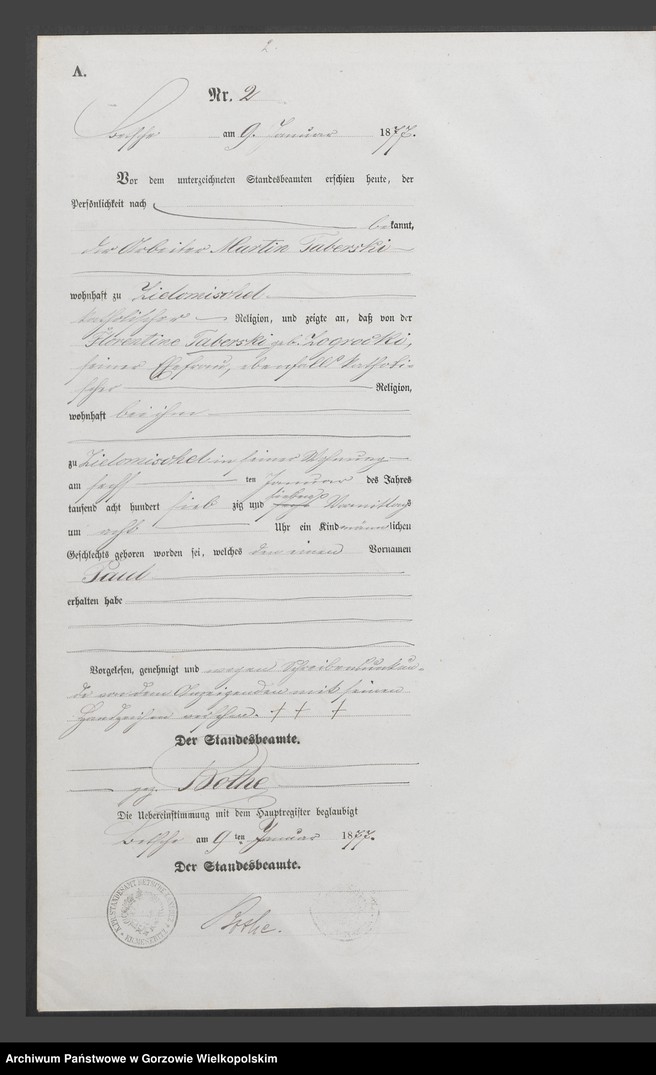 2.
A.
Nr. 2
Betsche am 9. Januar 1877.
Vor dem unterzeichneten Standesbeamten erschien heute, der
Persönlichkeit nach
bekannt,
der Arbeiter Martin Taberski
wohnhaft zu Zielomischel
katholischer Religion, und zeigte an, daß von der
Florentine Taberski geb.
seiner Ehefrau, ebenfalls katholi-
scher Religion,
wohnhaft bei ihm
zu Zielomischel in seiner Wohnung
am sechs ten Januar des Jahres
tausend acht hundert sieb zig und sieben Vormittags
um acht Uhr ein Kind männlichen
Geschlechts geboren worden sei, welches den einen Vornamen
Paul
erhalten habe
Vorgelesen, genehmigt und wegen Schreibensunkun-
de von dem Anzeigenden mit seinen
Handzeichen versehen. + + +
Der Standesbeamte.
gez. Bothe
Die Uebereinstimmung mit dem Hauptregister beglaubigt
Betsche am 9ten Januar 1877.
Der Standesbeamte.
Bothe.
STANDESAMT BETSCHE
KR. MESERITZ
Archiwum Państwowe w Gorzowie Wielkopolskim